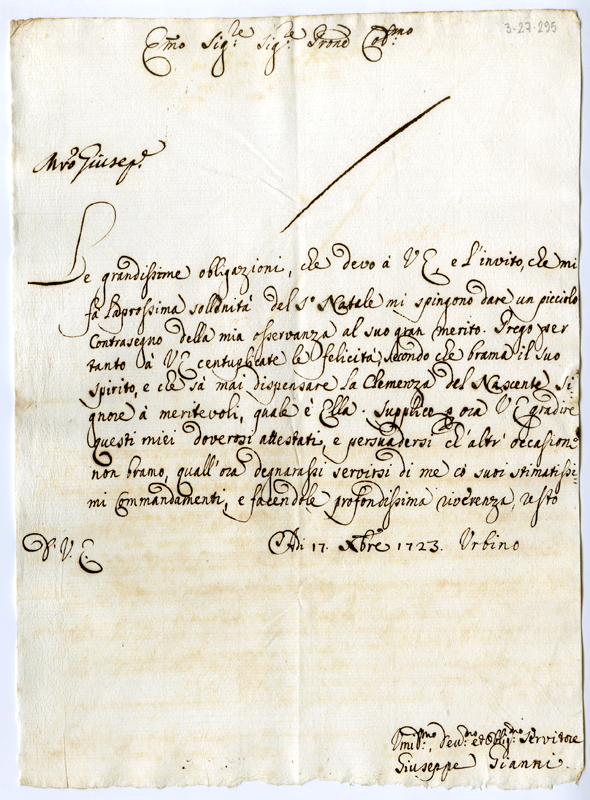 3-27-295
Emo Sig.re Sig.re Prone Col.mo
Giusep.e
Le grandissime obligazioni, che devo à V E, e l'invito, che mi
fa la prossima sollenità del S.o Natale mi spingono dare un picciolo
Contrasegno della mia osservanza al suo gran merito. Prego per
tanto à V E centuplicate le felicità secondo che brama il suo
spirito, e che sà mai dispensare la Clemenza del Nascente Si
gnore à meritevoli, quale è Ella. Supplico ora V E gradire
questi miei doverosi attestati, e persuadersi ch'altr' occasione
non bramo, quall'ora degnarassi servirsi di me cō suoi stimatissi-
mi Commandamenti, e facendole profondissima riverenza, resto
D. V. E.
Adi 17. Xbre 1723. Urbino
Umil.mo, Deu.mo et Obli.mo Servitore
Giuseppe Gianni